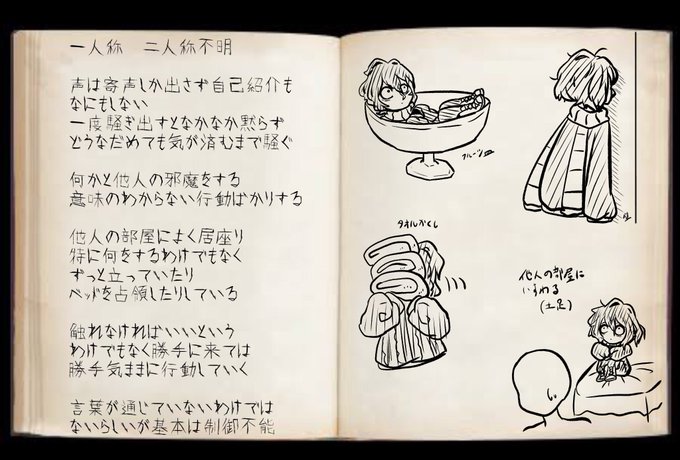 一人称　二人称不明
声は寄声しか出さず自己紹介も
なにもしない
一度騒ぎ出すとなかなか黙らず
どうなだめても気が済むまで騒ぐ
何かと他人の邪魔をする
意味のわからない行動ばかりする
他人の部屋によく居座り
特に何をするわけでもなく
ずっと立っていたり
ベッドを占領したりしている
触れなければいいという
わけでもなく勝手に来ては
勝手気ままに行動していく
言葉が通じていないわけでは
ないらしいが基本は制御不能
フルーツ皿
タオルかくし
他人の部屋に
いすわる
(土足)